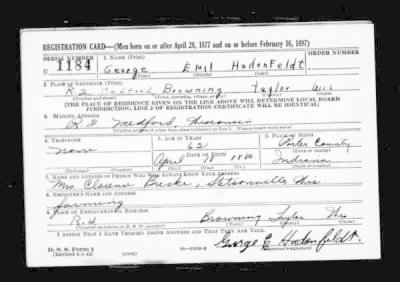 REGISTRATION CARD—(Men born on or after April 28, 1877 and on or before February 16, 1897)
SERIAL NUMBER 1. NAME (Print) ORDER NUMBER
U 1184 George Emil Hodenfeldt
(First) (Middle) (Last)
2. PLACE OF RESIDENCE (Print)
R 2 Medford Browning Taylor Wis
(Number and street) (Town, township, village, or city) (County) (State)
[THE PLACE OF RESIDENCE GIVEN ON THE LINE ABOVE WILL DETERMINE LOCAL BOARD
JURISDICTION; LINE 2 OF REGISTRATION CERTIFICATE WILL BE IDENTICAL]
3. MAILING ADDRESS
R 2 Medford, Wisconsin
[Mailing address if other than place indicated on line 2. If same insert word same]
4. TELEPHONE 5. AGE IN YEARS 6. PLACE OF BIRTH
62 Porter County
none DATE OF BIRTH (Town or county)
April 1880 Indiana
(Exchange) (Number) (Mo.) (Day) (Yr.) (State or country)
7. NAME AND ADDRESS OF PERSON WHO WILL ALWAYS KNOW YOUR ADDRESS
Mrs. Clarence Stetsonville Wis
8. EMPLOYER'S NAME AND ADDRESS
farming
9. PLACE OF EMPLOYMENT OR BUSINESS
Browning Taylor Wis
(Number and street or R. F. D. number) (Town) (County) (State)
I AFFIRM THAT I HAVE VERIFIED ABOVE ANSWERS AND THAT THEY ARE TRUE.
D. S. S. Form 1
(Revised 4-1-42) (over) George E Hodenfeldt.
(Registrant's signature)